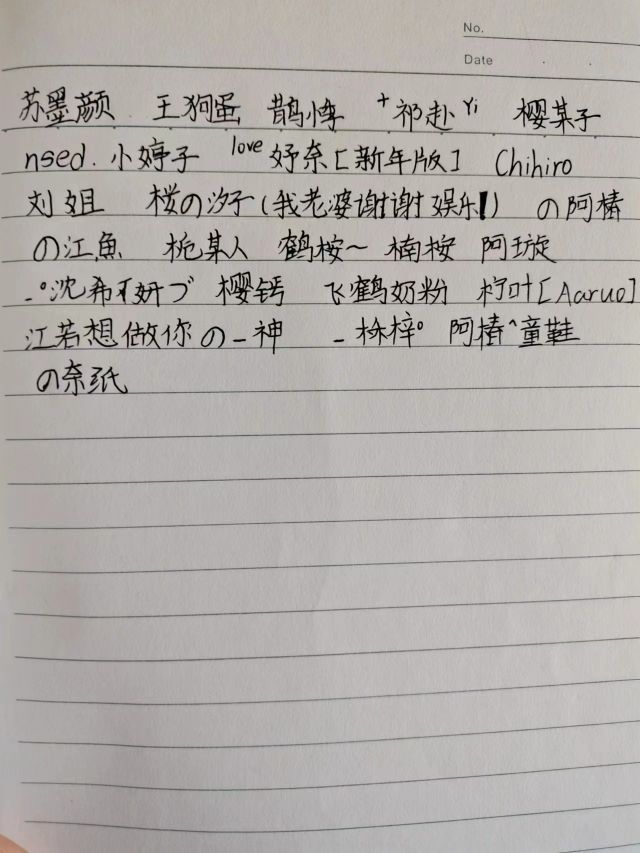 No.
Date
苏墨颜 王狗蛋 鹊悕 +祁赴Yi 樱某子
nsed. 小婷子 love妤奈[新年版] Chihiro
刘姐 桜の汐子(我老婆谢谢 娱乐) の阿椿
の江鱼 桅某人 鹤桉~ 楠桉 阿璇
-°沈希 妍づ 樱钙 飞鹤奶粉 柠叶[Aaruo]
江若想做你の-神 -楘梓° 阿椿^童鞋
の奈纸